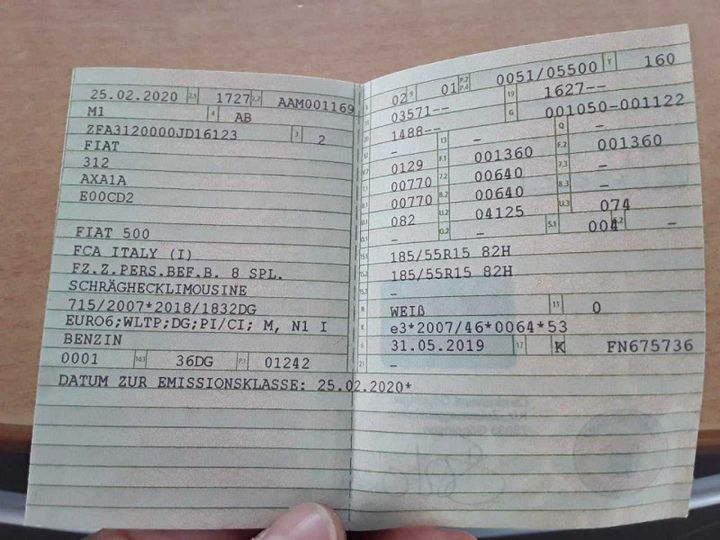 25.02.2020 2.1 1727 2.2 AAM001169
M1 4 AB
ZFA3120000JD16123 3 2
FIAT
312
AXA1A
E00CD2
FIAT 500
FCA ITALY (I)
FZ.Z.PERS.BEF.B. 8 SPL.
SCHRÄGHECKLIMOUSINE
715/2007*2018/1832DG
EURO6;WLTP;DG;PI/CI; M, N1 I
BENZIN
0001 14.1 36DG P.1 01242
DATUM ZUR EMISSIONSKLASSE: 25.02.2020*
02 9 01 P.2 P.4 0051/05500 T 160
03571-- 19 1627--
1488-- G 001050-001122
- 13 - Q -
0129 F.1 001360 F.2 001360
00770 7.2 00640 7.3 -
00770 8.2 00640 8.3 -
082 U.2 04125 U.3 074
- O.2 - S.1 004 S.2 -
185/55R15 82H
185/55R15 82H
-
WEIß 11 0
e3*2007/46*0064*53
31.05.2019 17 K FN675736
-